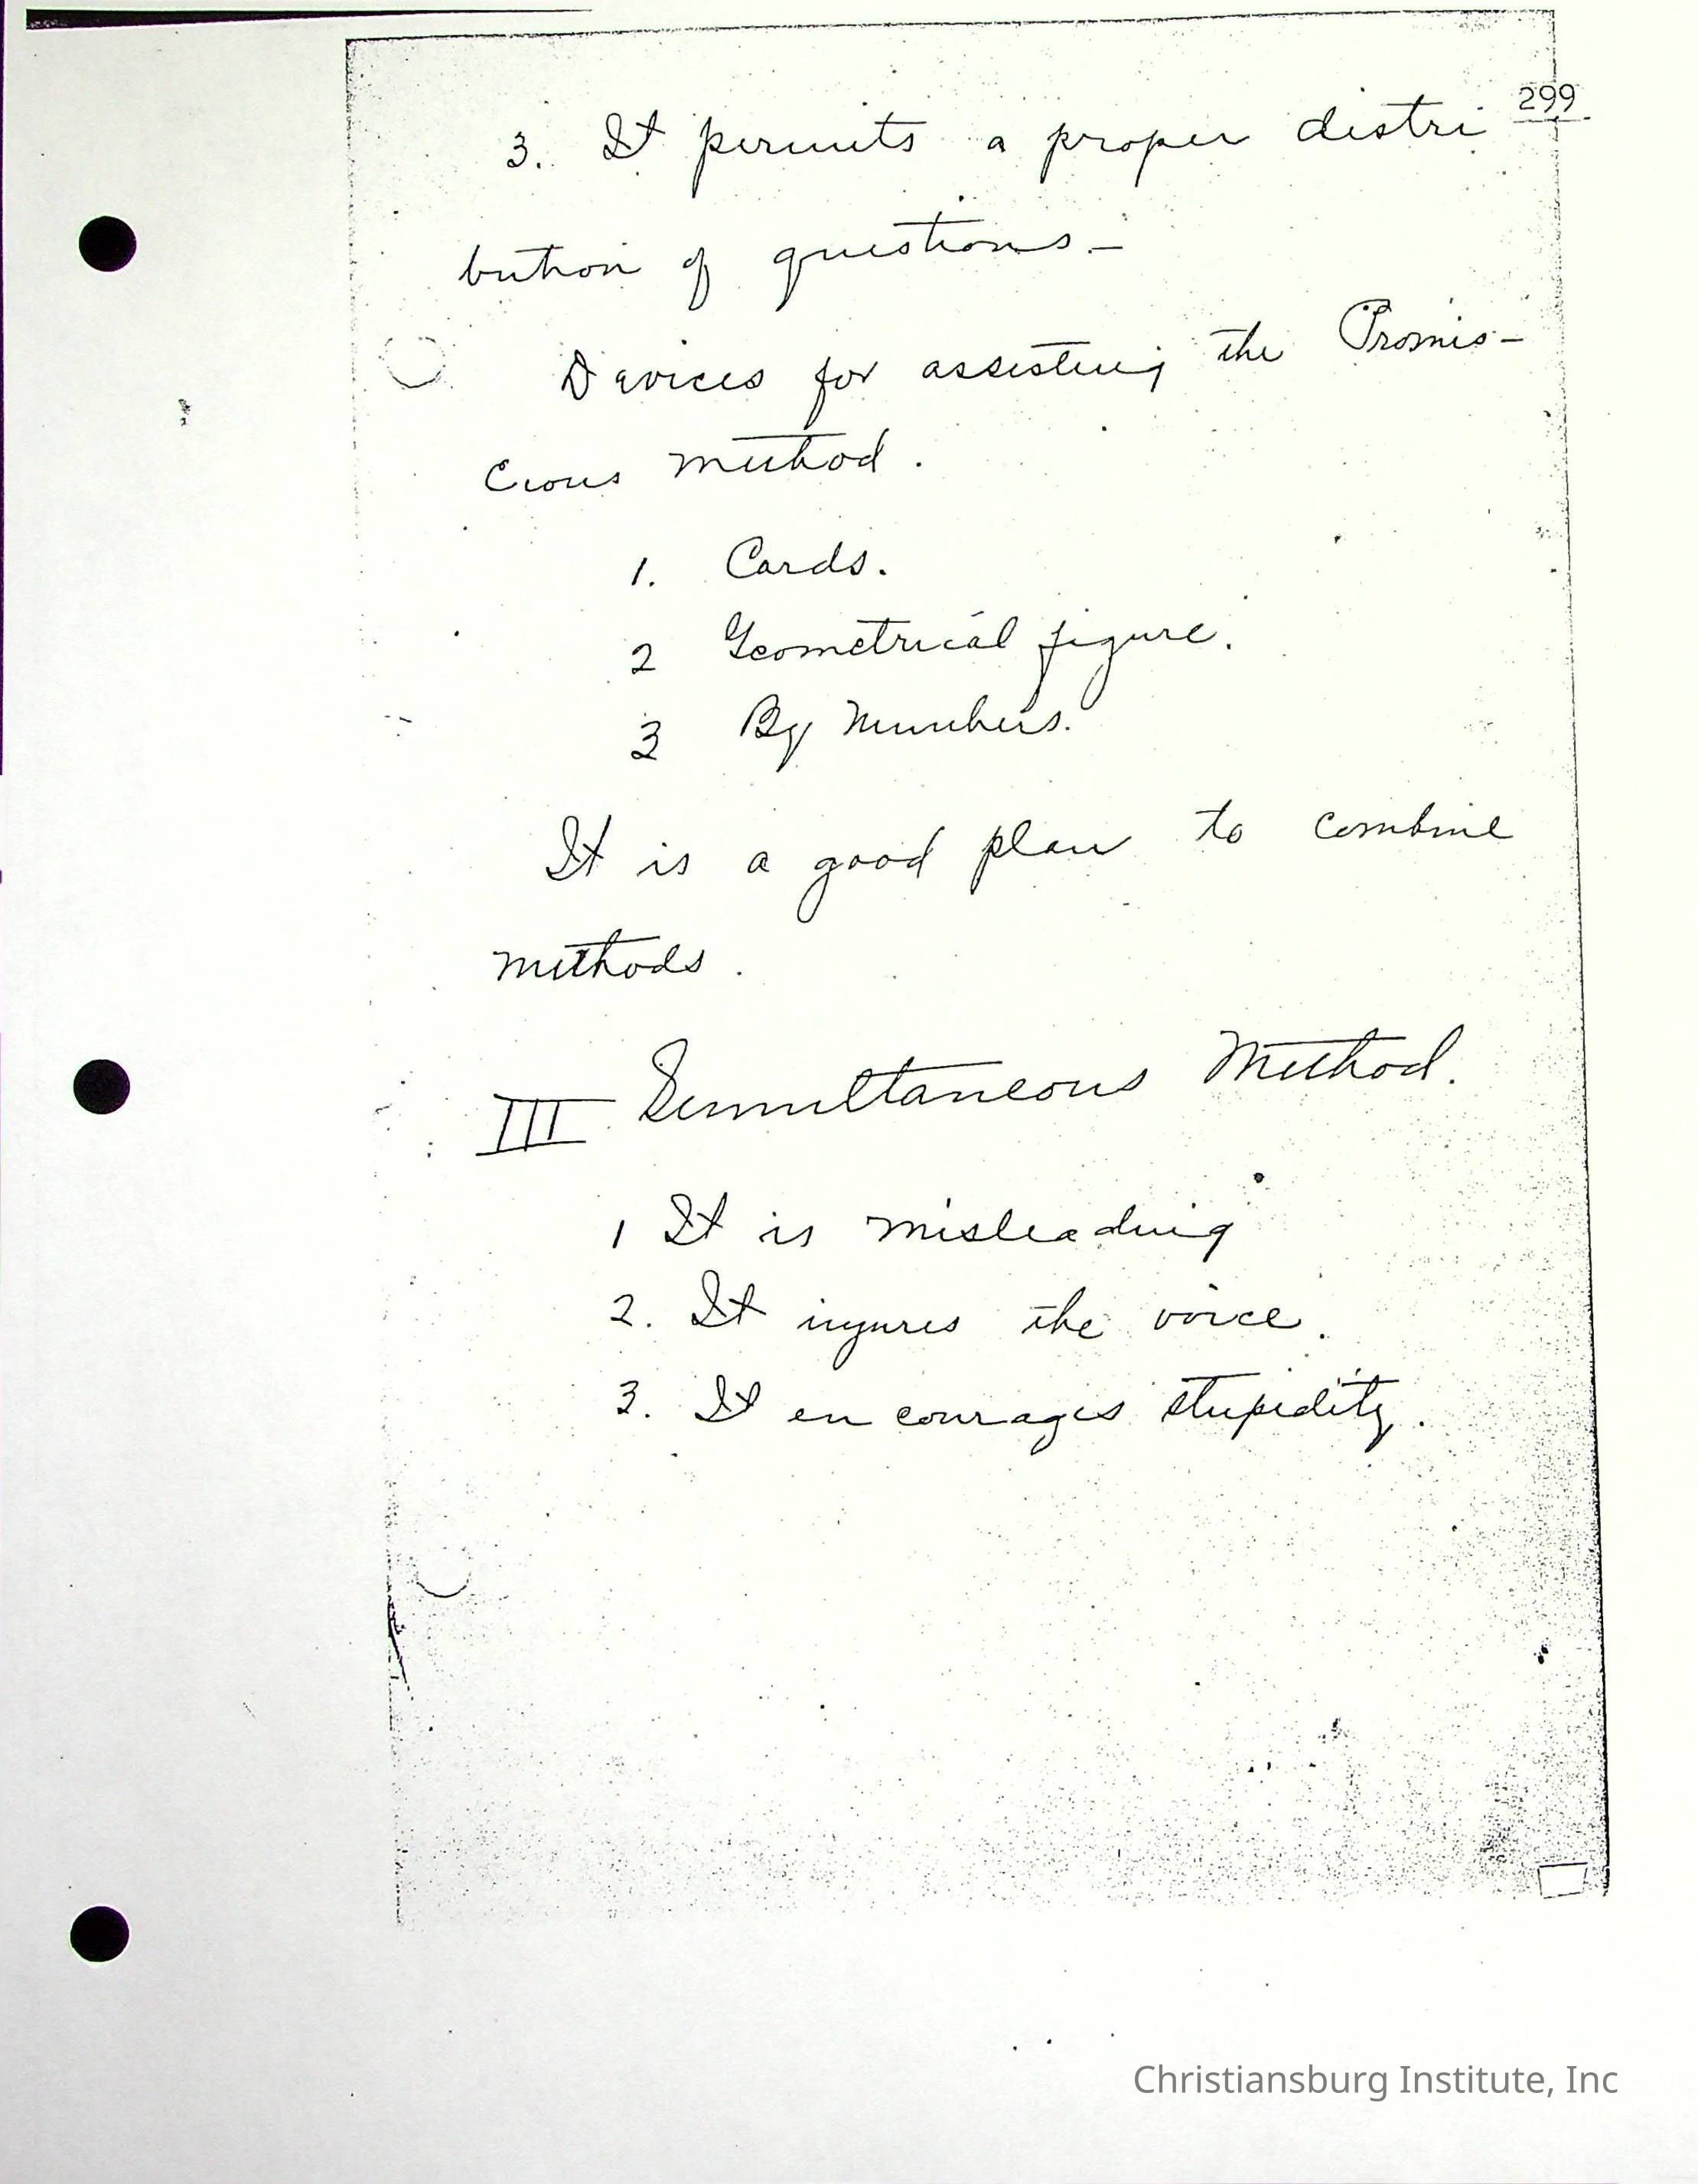 299
3. It permits a proper distri
bution of questions.—
Devices for assisting the Promis-
cious method.
1. Cards.
2 Geometrical figure.
3 By Numbers.
It is a good plan to combine
methods.
III Simultaneous Method.
1 It is misleading
2. It injures the voice.
3. It en courages stupidity.
Christiansburg Institute, Inc